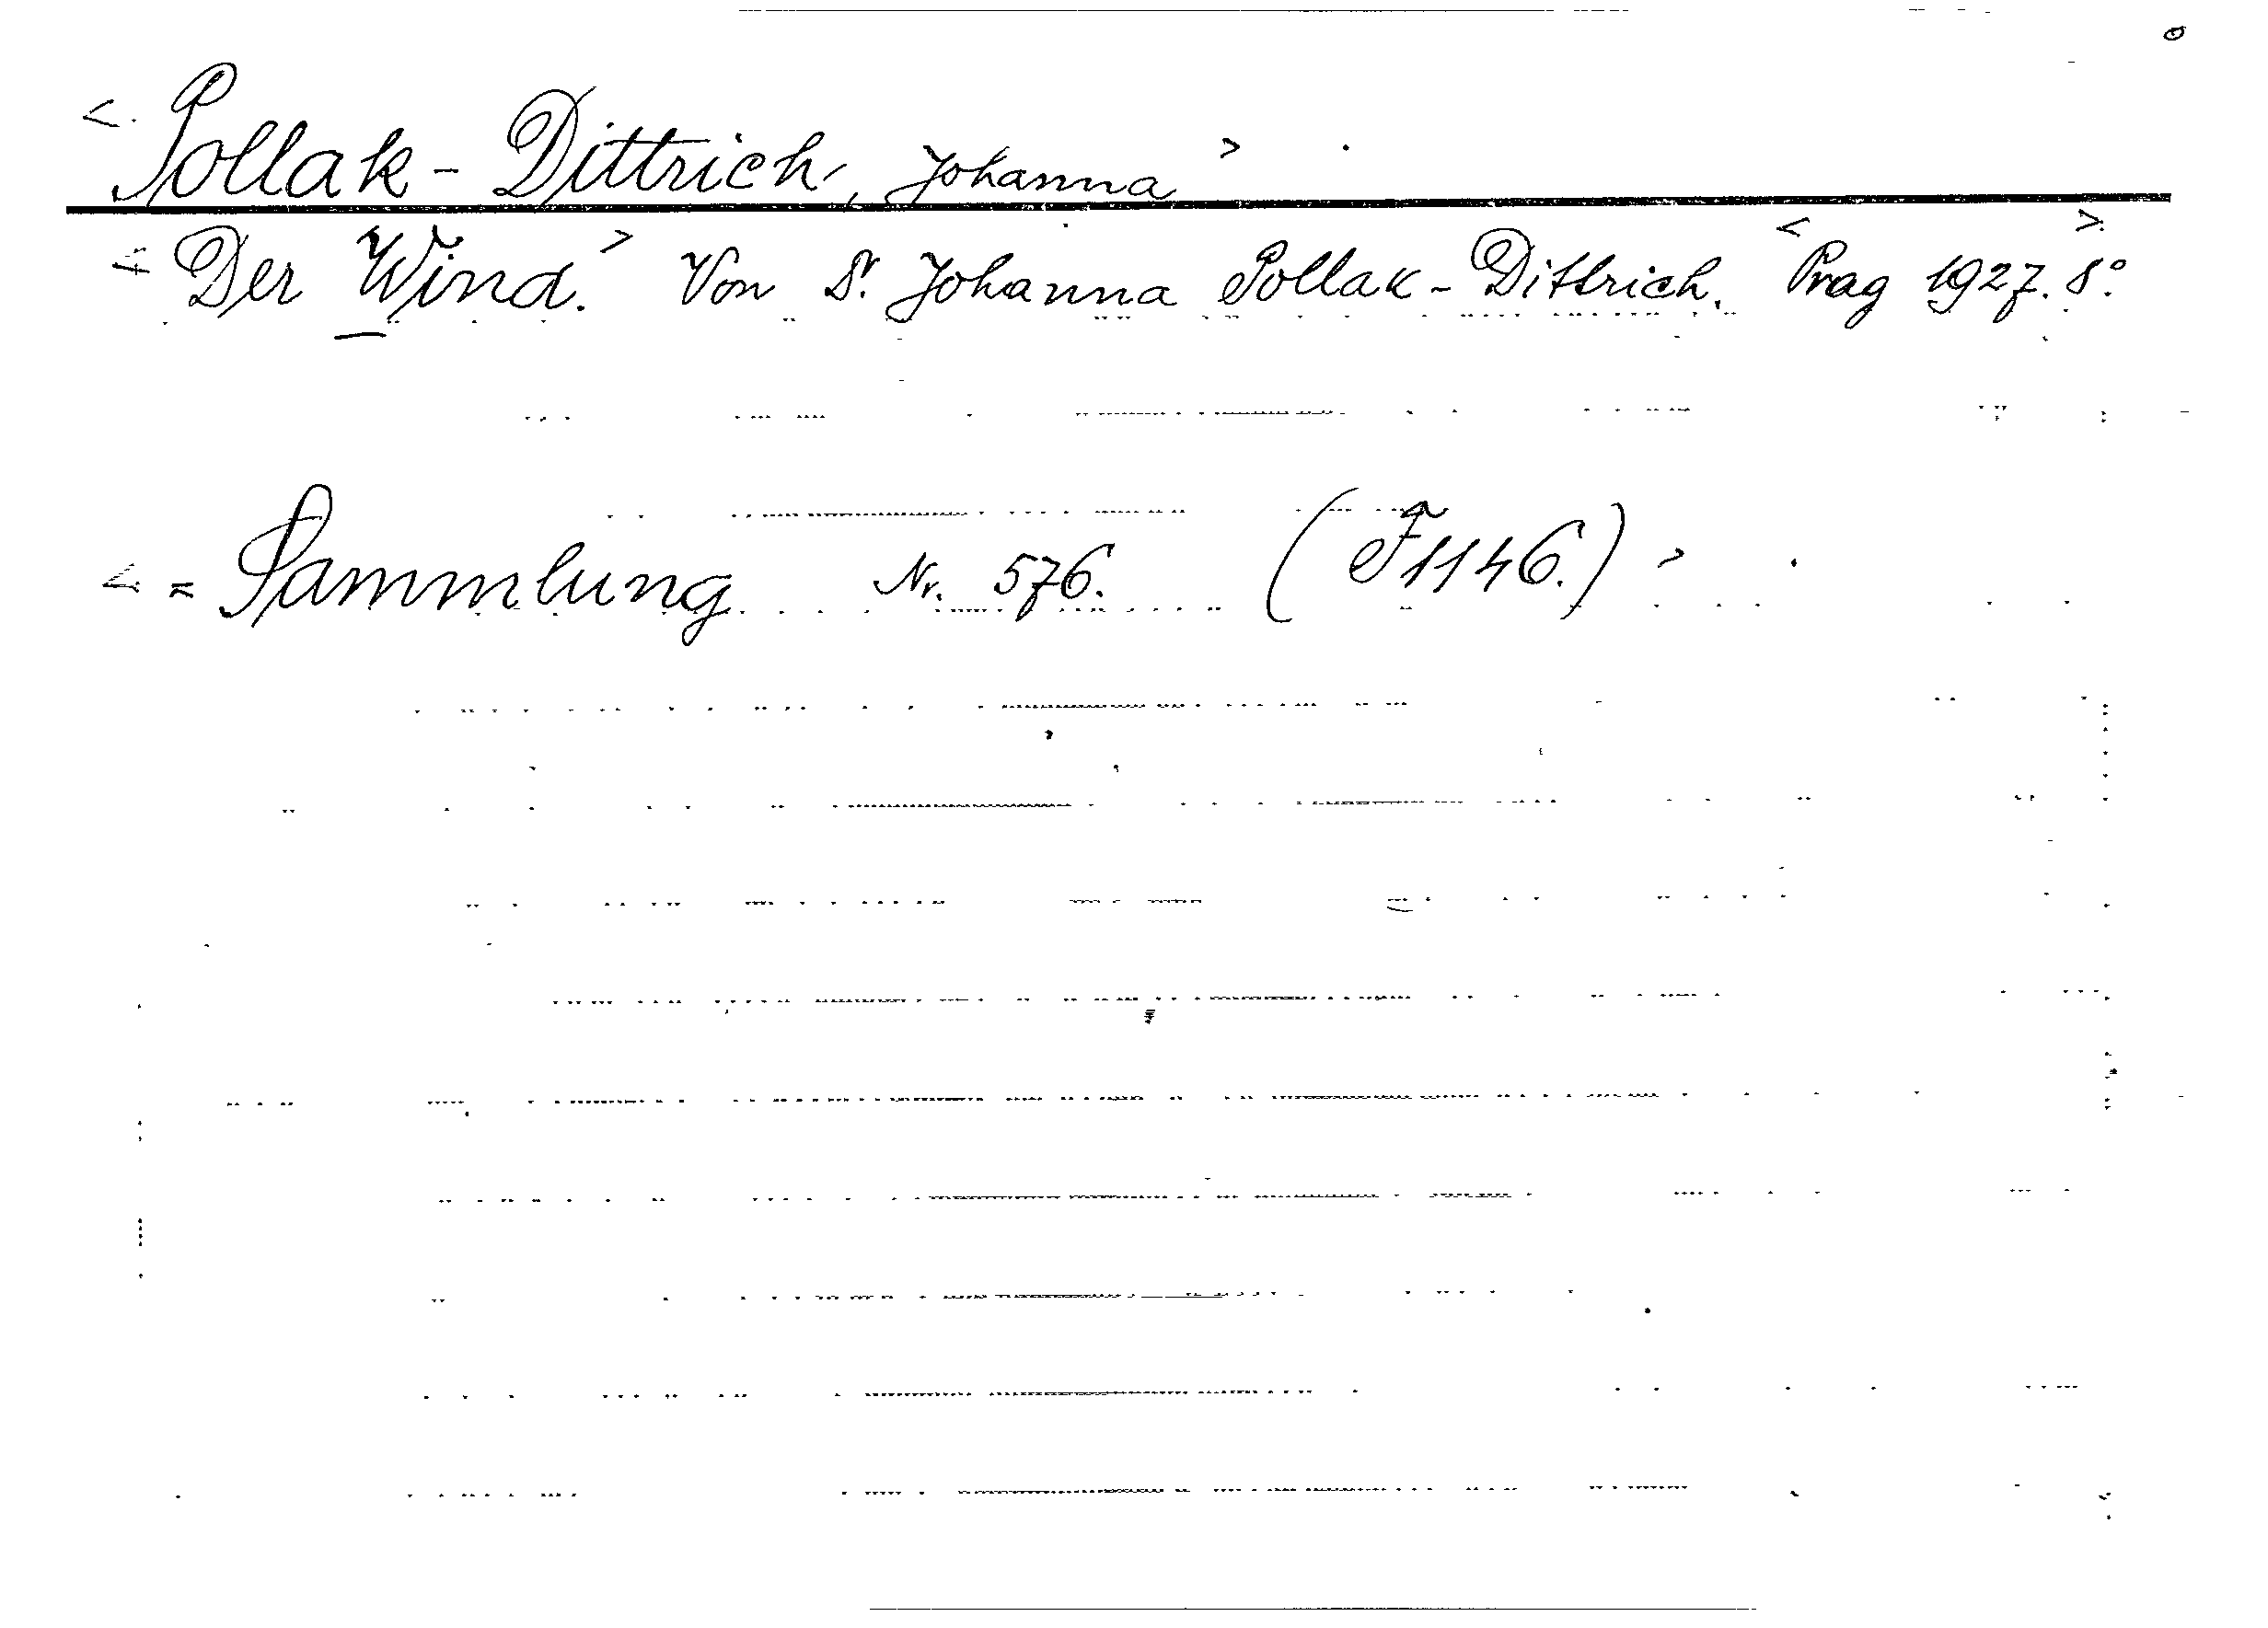 < Pollak - Dittrich, Johanna >
< Der Wind. > Von Dr. Johanna Pollak - Dittrich. < Prag 1927. > 8°.
< = Sammlung Nr. 576. (F 1146.) >